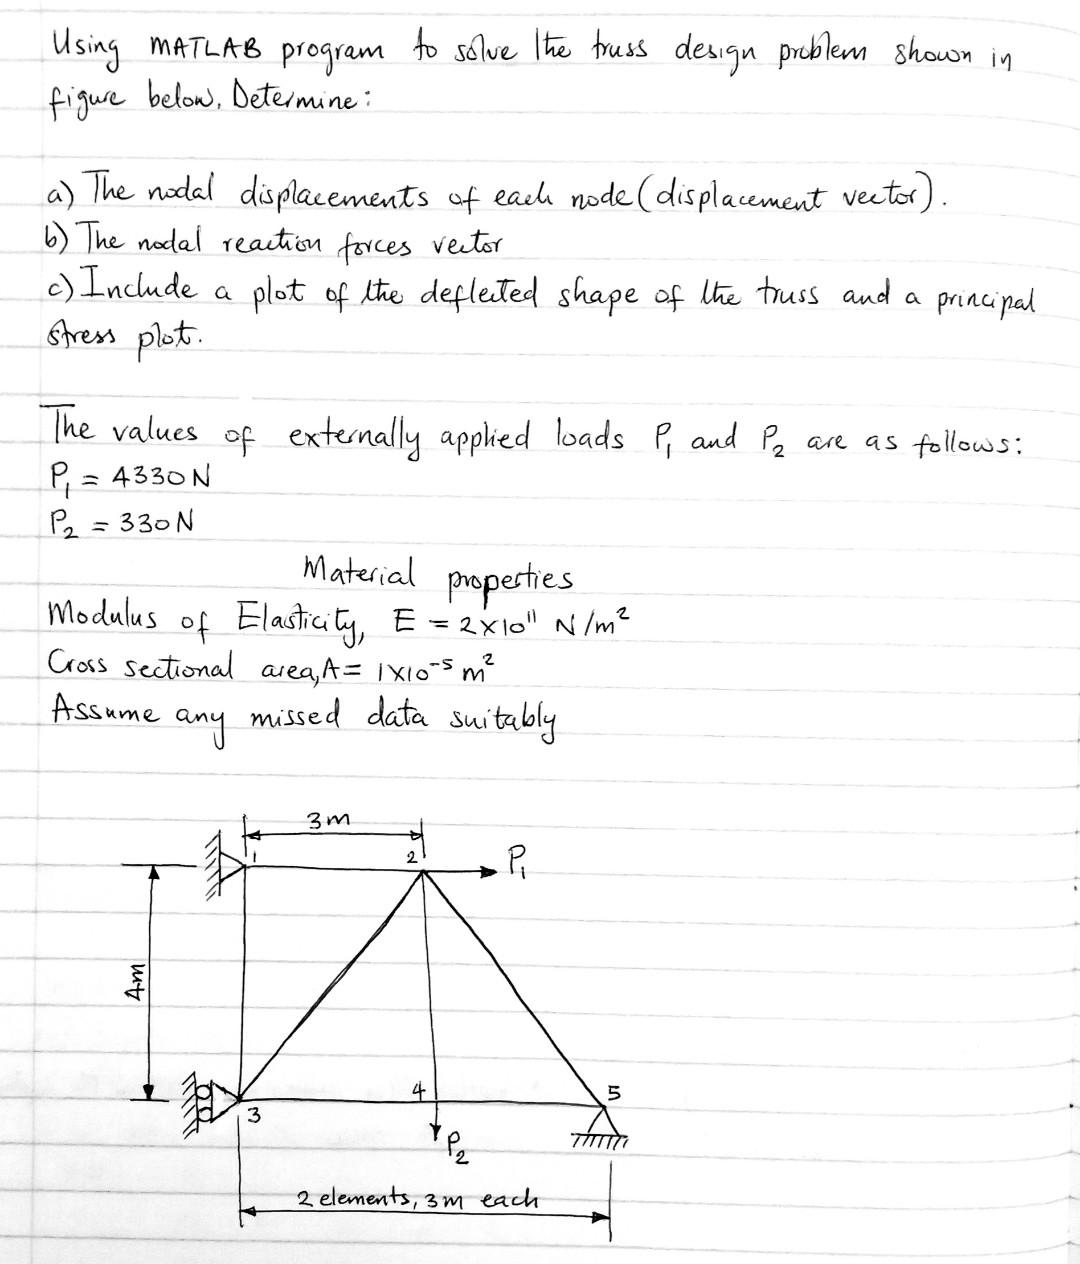 Using MATLAB program to solve the truss design problem shown in
figure below, Determine:
a) The nodal displacements of each node (displacement vector).
b) The nodal reaction forces vector
c) Include a plot of the deflected shape of the truss and a principal
stress plot.
The values of externally applied loads P₁ and P₂ are as follows:
P₁ = 4330N
P₂ = 330N
Material properties
Modulus of Elasticity, E = 2×10¹¹ N/m²
Cross sectional area, A = 1×10⁻⁵ m²
Assume any missed data suitably
3m
1
2
P₁
4m
3
4
5
P₂
2 elements, 3m each